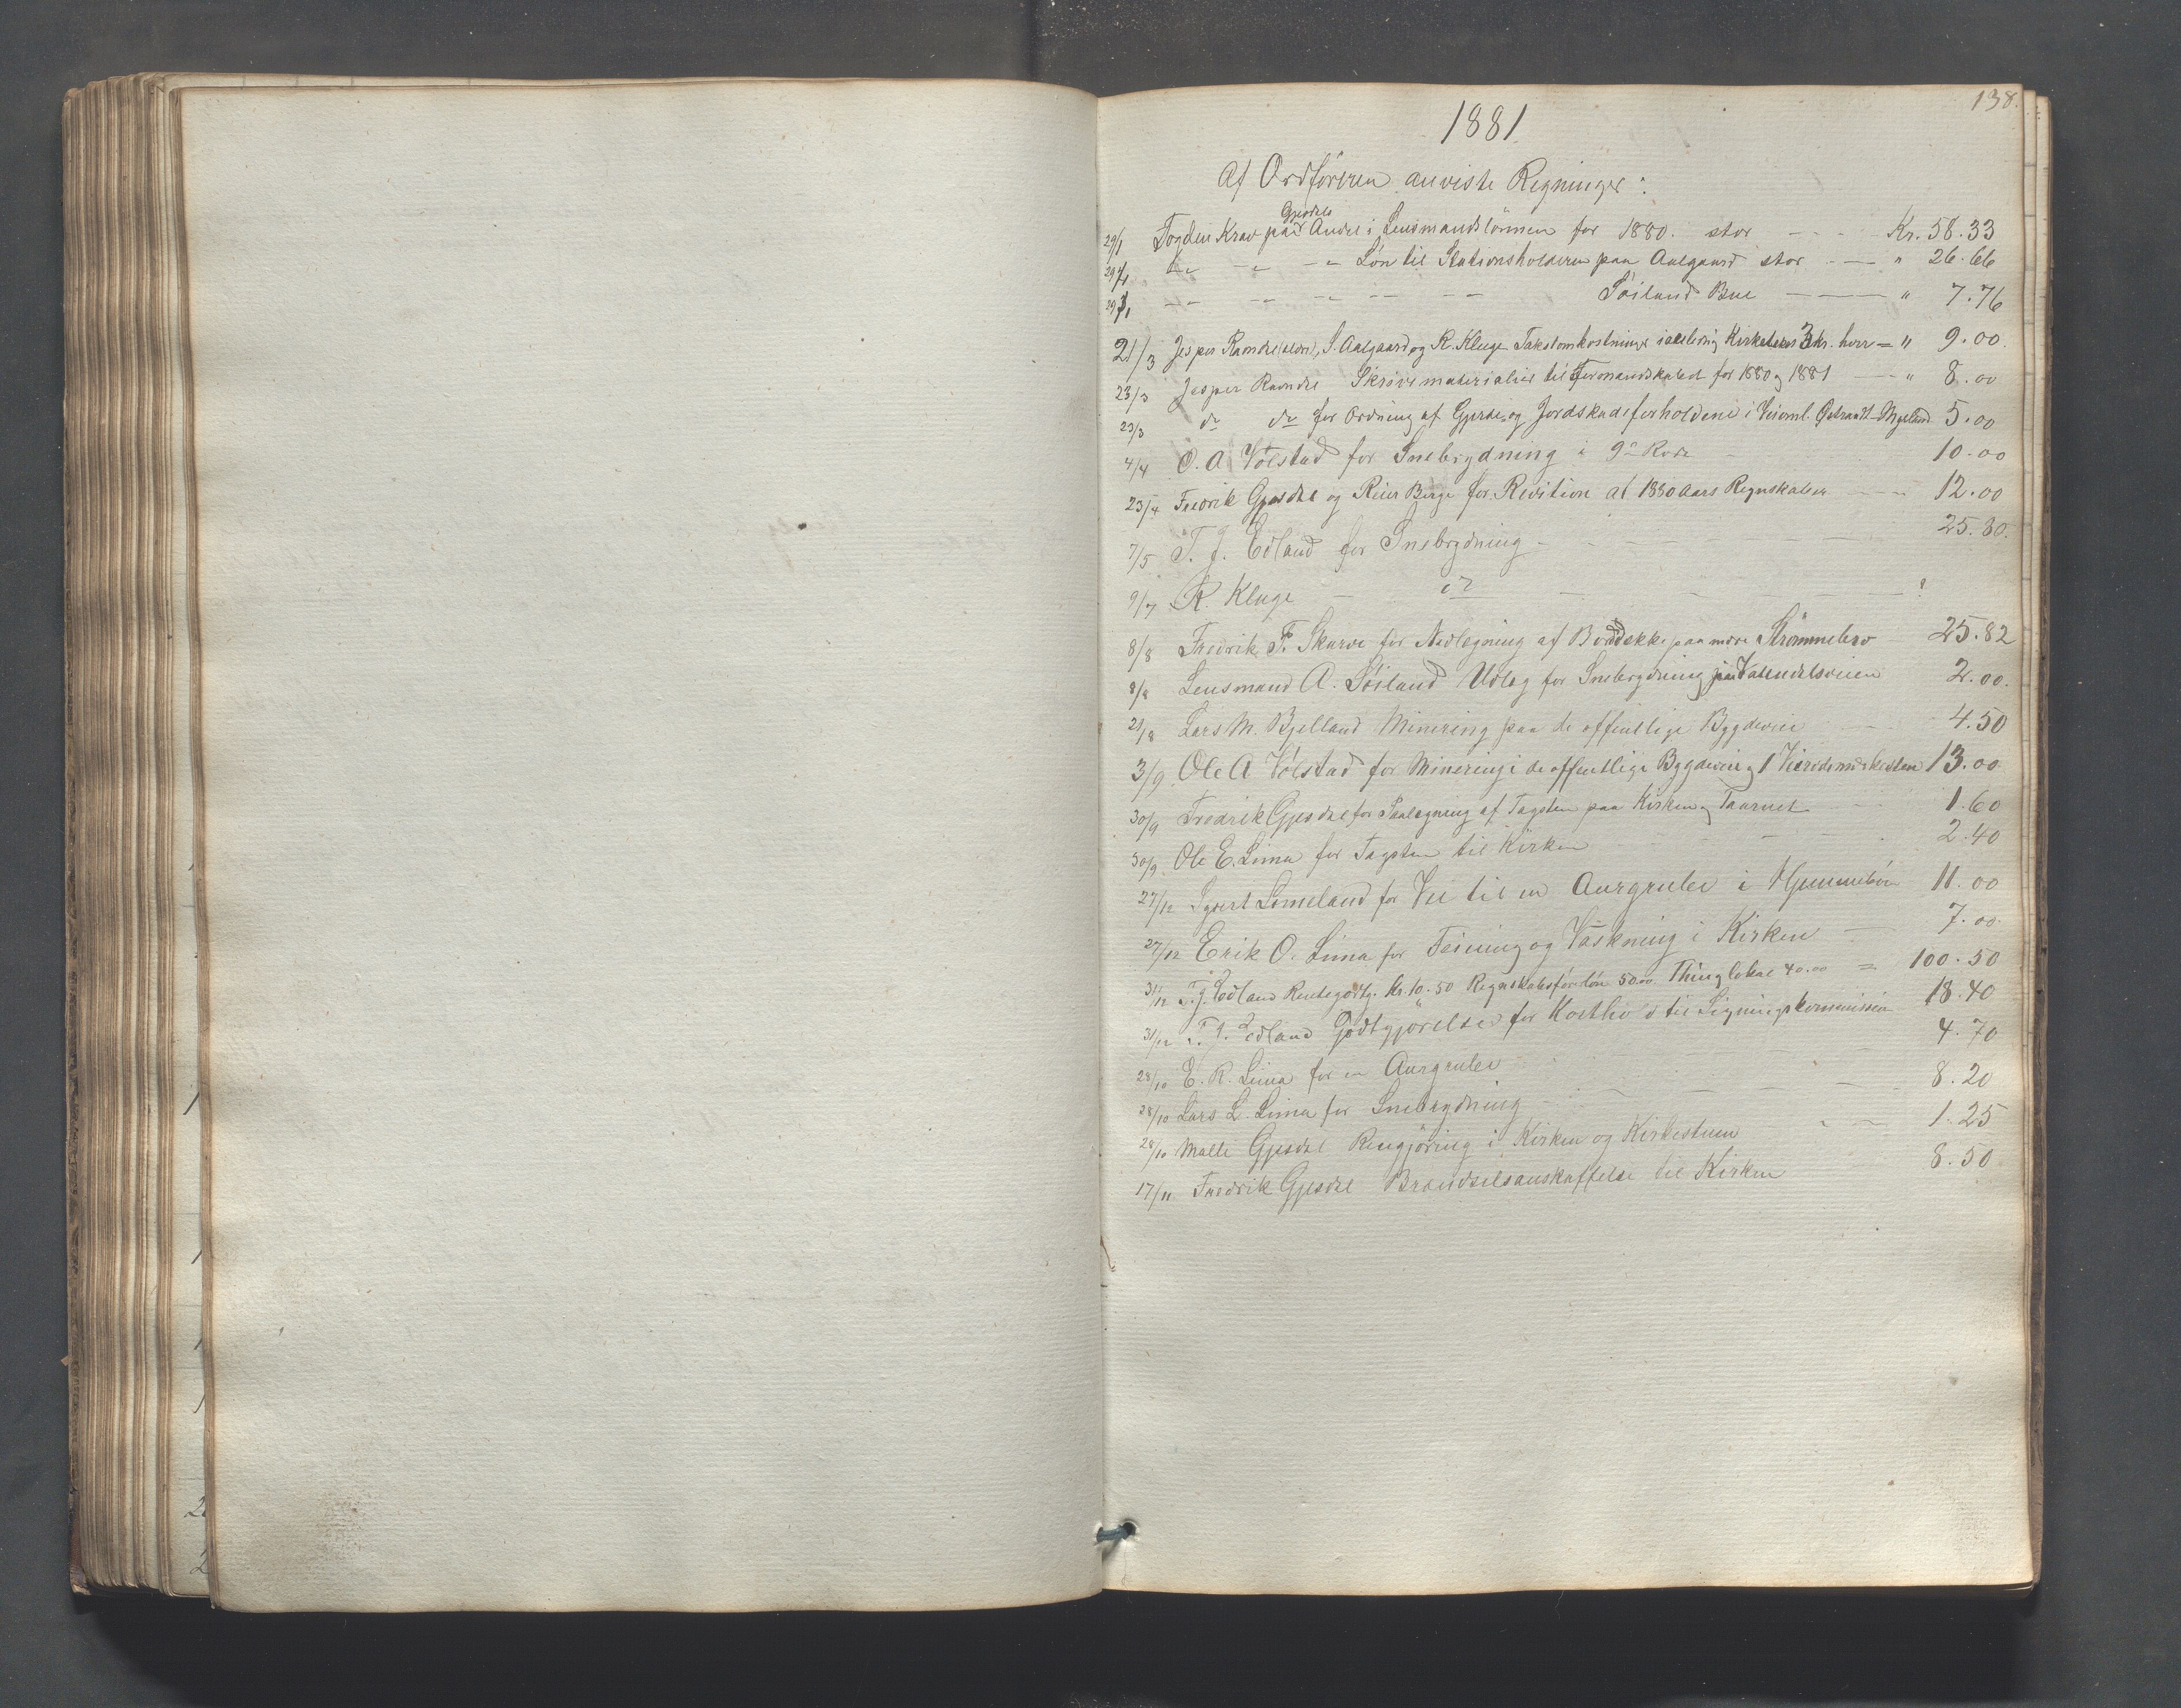 138.
1881
Af Ordføreren anviste Regninger:
29/1 Fogden Krav paa Gjesdals Andel i Lensmandslønnen for 1880. stor — Kr. 58.33
29/1 — — — Løn til Stationsholderen paa Aalgaard stor — " 26.66
29/1 — — — — — Søiland Bue — " 7.76
21/3 Jesper Ravndal (eldre), S. Aalgaard og R. Kluge Takstomkostninger 3 Kr. hver = " 9.00.
23/3 Jesper Ravndal Skrivematerialier til Formandskabet for 1880 og 1881 — " 8.00
23/3 do do for Ordning af Gjerde og Jordskadeforholdene i Veianl. Østraadt-Myland 5.00
4/4 O. A. Vølstad for Snebrydning i 9de Rode — 10.00
23/4 Fredrik Gjesdal og Reier Berge for Revition af 1880 Aars Regnskaber — 12.00
7/5 T. J. Edland for Snebrydning — 25.80.
9/7 R. Kluge — do — ?
8/8 Fredrik T. Skurve for Nedlægning af Borddække paa nedre Strømmebro 25.82
8/8 Lensmand A. Søiland Udlæg for Snebrydning paa 2.00.
21/8 Lars M. Bjelland Minering paa de offentlige Bygdeveie — 4.50
3/9 Ole A Vølstad for Minering i de offentlige Bygdeveie og 1 13.00
30/9 Fredrik Gjesdal for Paalægning af Tagsten paa Kirken og Taarnet — 1.60
30/9 Ole E. Lima for Tagsten til Kirken — 2.40
27/12 Sjvert Limeland for Vei til en Aurgrube i 11.00
27/12 Erik O. Lima for Feining og Vaskning i Kirken — 7.00.
31/12 T. J. Edland Rentegodtg. Kr. 10.50 Regnskabsførerløn 50.00 Thinglokal 40.00 = 100.50
31/12 T. J. Edland Godtgjørelse for Kosthold til Ligningskommissionen 18.40
28/10 E. R. Lima for en Aurgrube — 4.70
28/10 Lars L. Lima for Snebrydning — 8.20
28/10 Malli Gjesdal Rengjøring i Kirken og Kirkestuen — 1.25
17/11 Fredrik Gjesdal Brændselsanskaffelse til Kirken 8.50